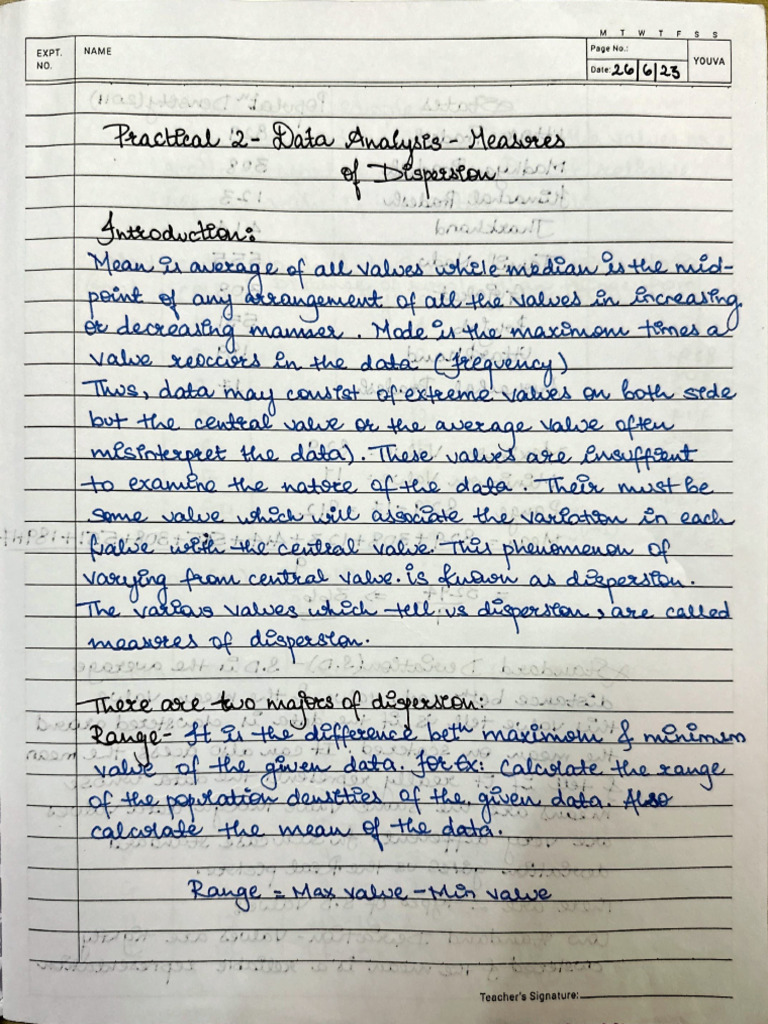 M T W T F S S
EXPT. NO.
NAME
Page No.:
Date: 26/6/23
YOUVA
Practical 2 - Data Analysis - Measures
of Dispersion
Introduction:
Mean is average of all values while median is the mid-
point of any arrangement of all the values in increasing
or decreasing manner. Mode is the maximum times a
value reoccurs in the data (frequency)
Thus, data may consist of extreme values on both side
but the central value or the average value often
misinterpret the data). These values are insufficient
to examine the nature of the data. Their must be
some value which will associate the variation in each
value with the central value. This phenomenon of
varying from central value. is known as dispersion.
The various values which tell us dispersion, are called
measures of dispersion.
There are two majors of dispersion:
Range - It is the difference betn maximum & minimum
value of the given data. For Ex: calculate the range
of the population densities of the given data. Also
calculate the mean of the data.
Range = Max value - Min value
Teacher's Signature: